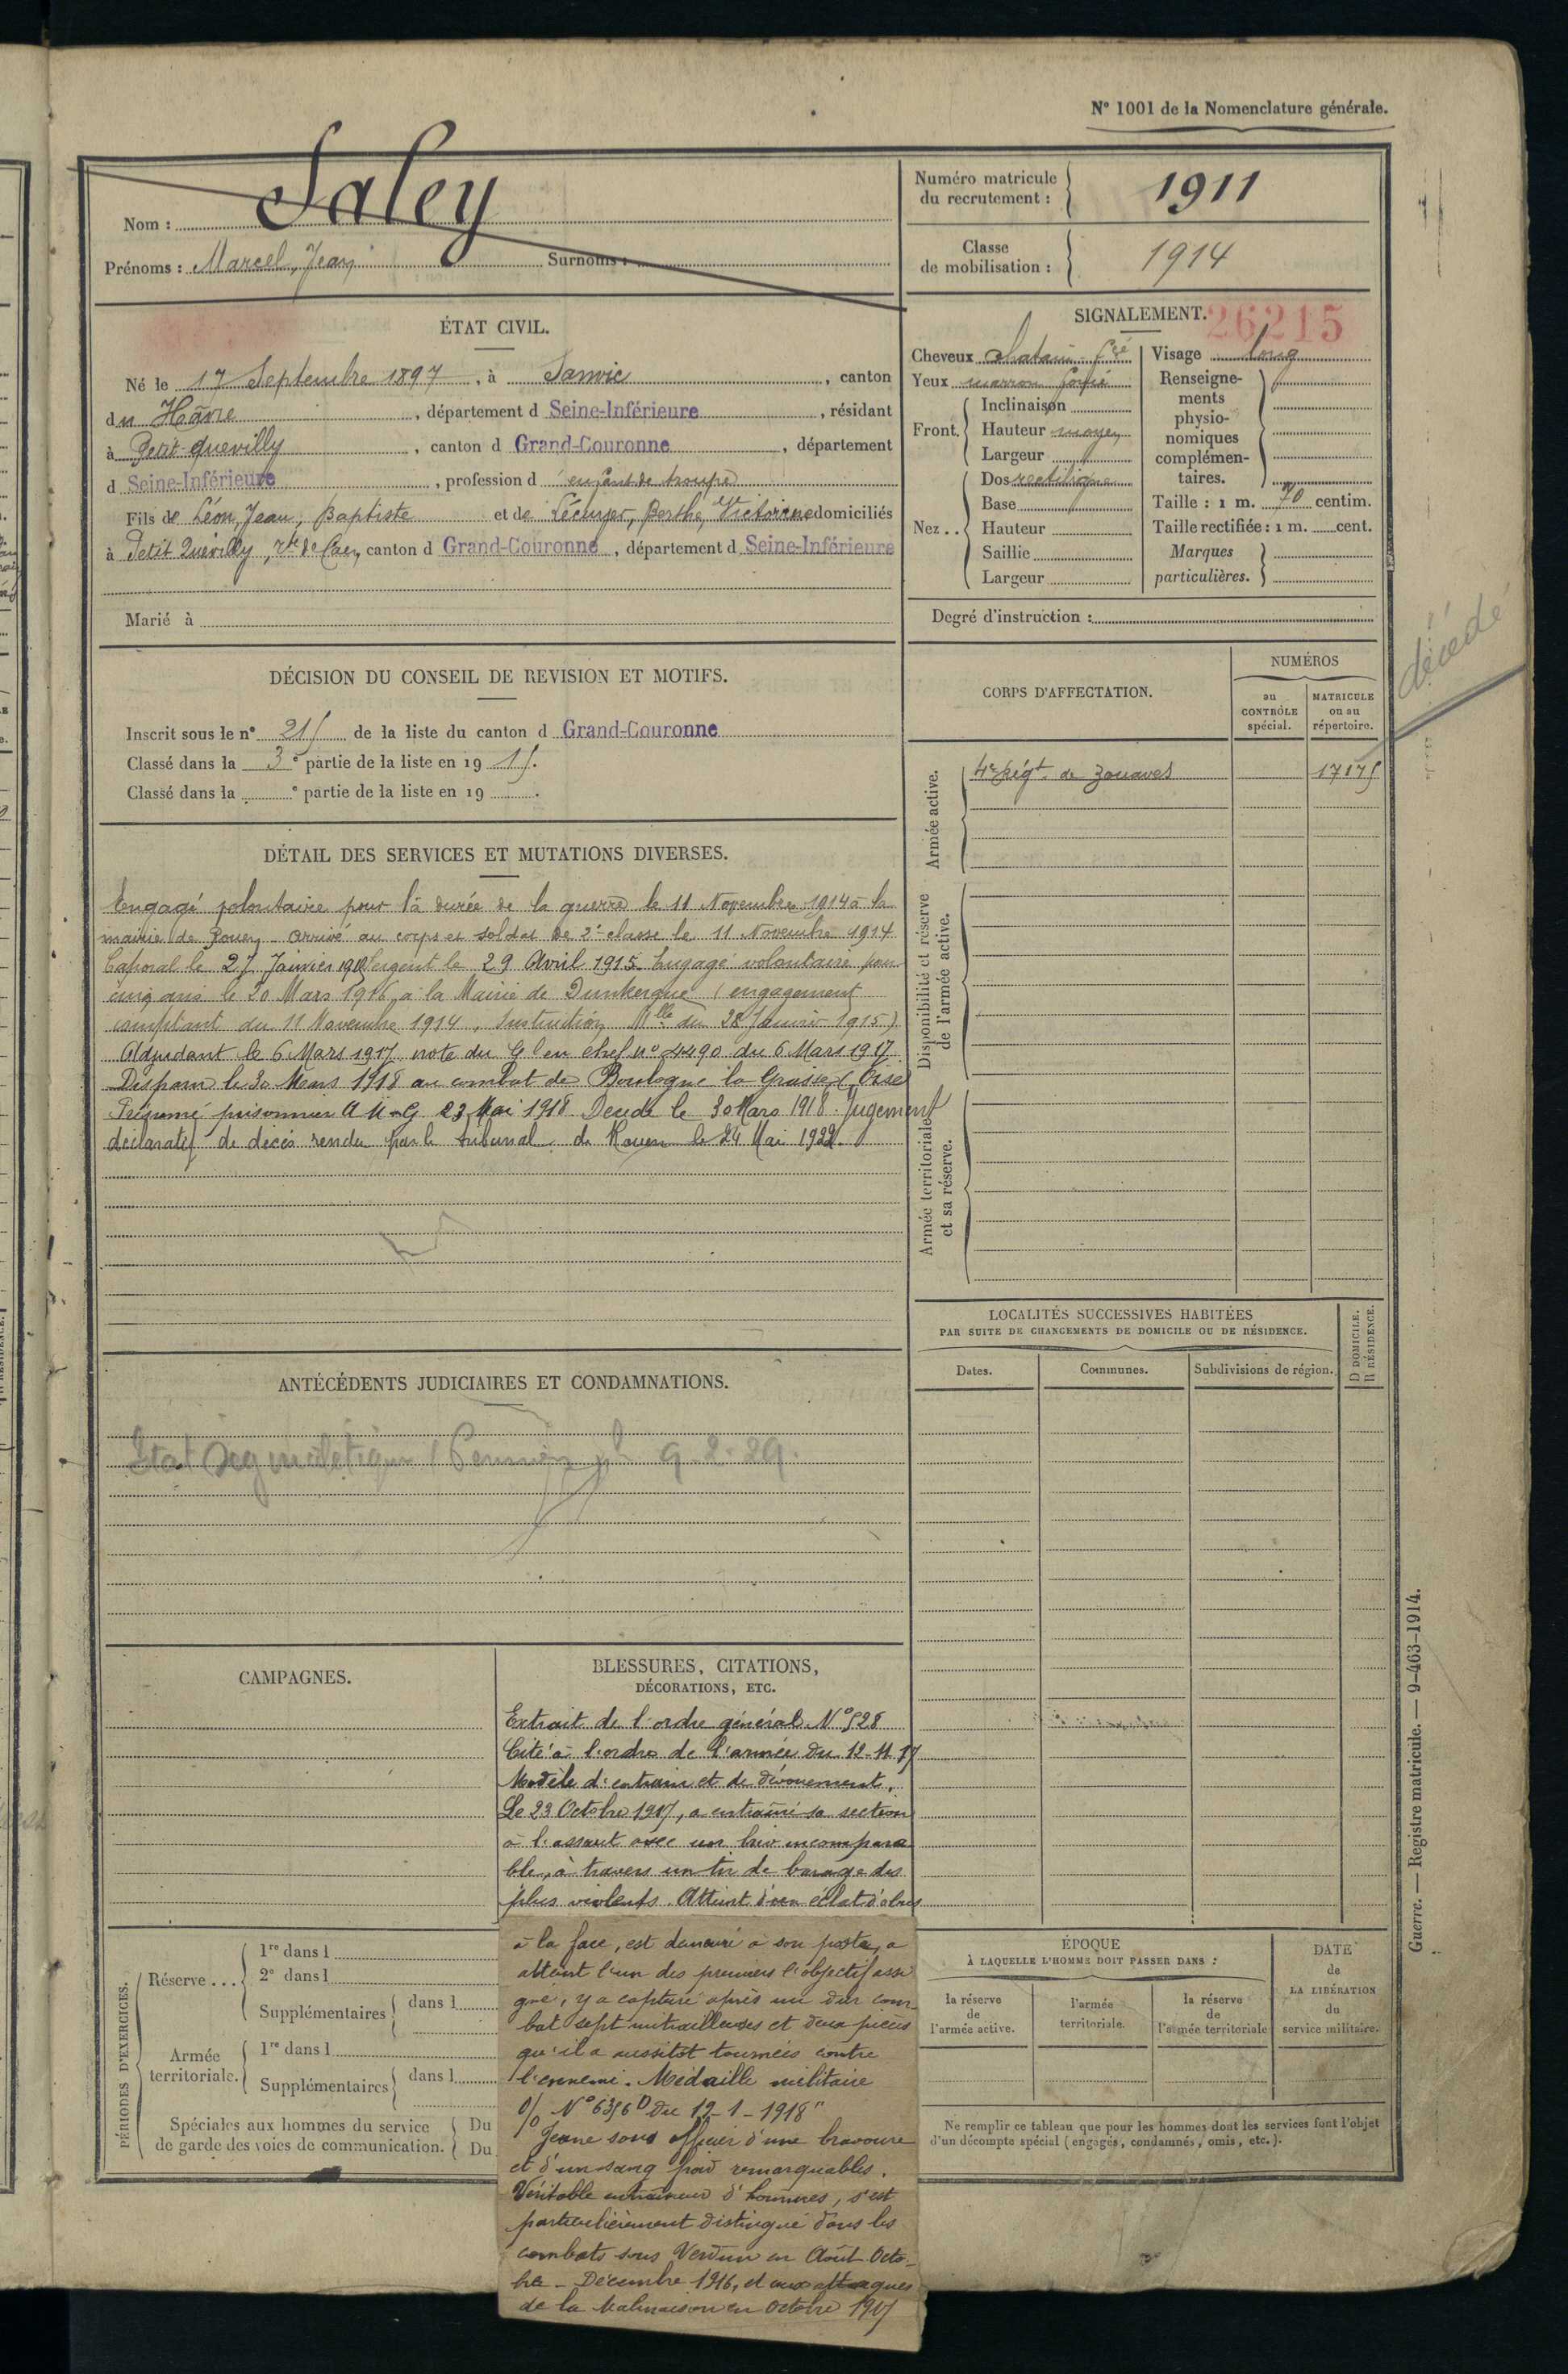 N° 1001 de la Nomenclature générale.
Nom : Saley
Prénoms : Marcel, Jean Surnoms :
Numéro matricule du recrutement : 1911
Classe de mobilisation : 1914
ÉTAT CIVIL.
Né le 17 Septembre 1897, à Sanvic, canton
du Hâvre, département d Seine-Inférieure, résidant
à Petit-Quevilly, canton d Grand-Couronne, département
d Seine-Inférieure, profession d enfant de troupe
Fils de Léon, Jean, Baptiste et de Lécuyer, Berthe, Victorine domiciliés
à Petit Quevilly, rte de Caen, canton d Grand-Couronne, département d Seine-Inférieure
Marié à
SIGNALEMENT.
26215
Cheveux chatain fcé
Yeux marron foncé
Front. Inclinaison
Hauteur moyen
Largeur
Nez .. Dos rectiligne
Base
Hauteur
Saillie
Largeur
Visage long
Renseignements physionomiques complémentaires.
Taille : 1 m. 70 centim.
Taille rectifiée : 1 m. cent.
Marques particulières.
Degré d'instruction :
décédé
DÉCISION DU CONSEIL DE REVISION ET MOTIFS.
Inscrit sous le n° 215 de la liste du canton d Grand-Couronne
Classé dans la 3e partie de la liste en 1915.
Classé dans la e partie de la liste en 19 .
CORPS D'AFFECTATION.
NUMÉROS
au CONTRÔLE spécial.
MATRICULE ou au répertoire.
Armée active.
4e Régt de Zouaves 17175
Disponibilité et réserve de l'armée active.
Armée territoriale et sa réserve.
DÉTAIL DES SERVICES ET MUTATIONS DIVERSES.
Engagé volontaire pour la durée de la guerre le 11 Novembre 1914 à la
mairie de Rouen. Arrivé au corps et soldat de 2e classe le 11 Novembre 1914
Caporal le 27 Janvier 1915 Sergent le 29 Avril 1915. Engagé volontaire pour
cinq ans le 30 Mars 1916 à la Mairie de Dunkerque (engagement
comptant du 11 Novembre 1914. Instruction Mlle du 28 Janvier 1915)
Adjudant le 6 Mars 1917 note du Gl en chef n° 4490 du 6 Mars 1917
Disparu le 30 Mars 1918 au combat de Boulogne la Grasse (Oise)
Présumé prisonnier A M G 23 Mai 1918 Décédé le 30 Mars 1918. Jugement
déclaratif de décès rendu par le tribunal de Rouen le 24 Mai 1922.
LOCALITÉS SUCCESSIVES HABITÉES
PAR SUITE DE CHANGEMENTS DE DOMICILE OU DE RÉSIDENCE.
Dates.
Communes.
Subdivisions de région.
D DOMICILE.
R RÉSIDENCE.
ANTÉCÉDENTS JUDICIAIRES ET CONDAMNATIONS.
Etat 9.2.29.
CAMPAGNES.
BLESSURES, CITATIONS,
DÉCORATIONS, ETC.
Extrait de l'ordre général N° 528
Cité à l'ordre de l'armée du 12-11 17
Modèle d'entrain et de dévouement.
Le 23 Octobre 1917, a entraîné sa section
à l'assaut avec un brio incompara
ble, à travers un tir de barage des
plus violents. Atteint d'un éclat d'obus
à la face, est demeuré à son poste, a
atteint l'un des premiers l'objectif assi
gné, y a capturé après un dur com-
bat sept mitrailleuses et deux pièces
qu'il a aussitôt tournées contre
l'ennemi. Médaille militaire
O/O N° 6356 D du 12-1-1918"
Jeune sous officier d'une bravoure
et d'un sang froid remarquables.
Véritable entraîneur d'hommes, s'est
particulièrement distingué dans les
combats sous Verdun en Août Octo-
bre - Décembre 1916, et aux attaques
de la Malmaison en Octobre 1917
PÉRIODES D'EXERCICES.
Réserve ... 1re dans l
2e dans l
Supplémentaires dans l
Armée territoriale. 1re dans l
Supplémentaires dans l
Spéciales aux hommes du service de garde des voies de communication. Du
Du
ÉPOQUE
À LAQUELLE L'HOMME DOIT PASSER DANS :
la réserve de l'armée active.
l'armée territoriale.
la réserve de l'armée territoriale
DATE de LA LIBÉRATION du service militaire.
Ne remplir ce tableau que pour les hommes dont les services font l'objet
d'un décompte spécial (engagés, condamnés, omis, etc.).
Guerre. — Registre matricule. — 9-463-1914.